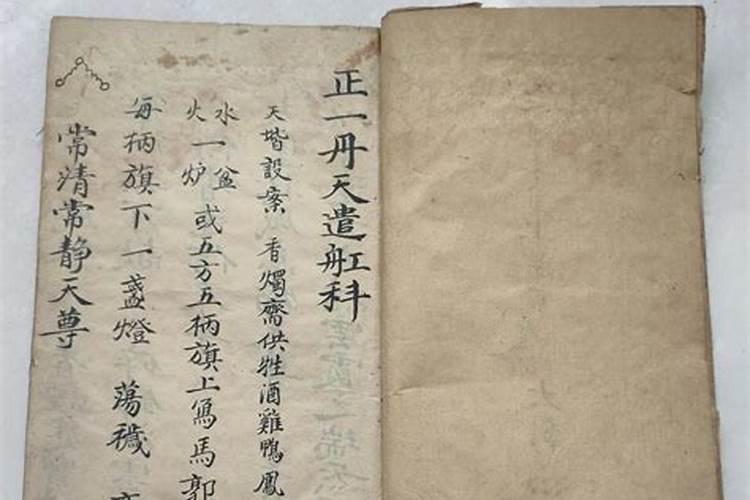 正一丹天遣舡科
天堦設案 香燭齋供牲酒雞鴨鳳
水一盆
火一炉
或五方五柄旗上為馬郭
每柄旗下一盞燈 蕩穢
常清常静天尊